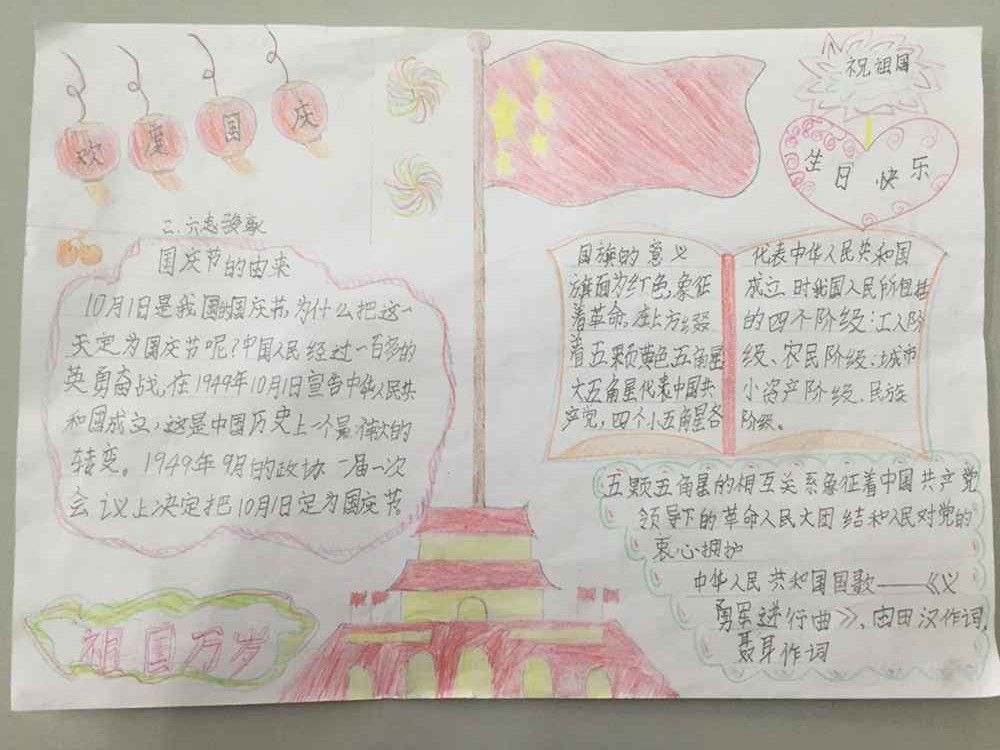 欢度国庆
祝祖国
生日快乐
二.六
国庆节的由来
10月1日是我国的国庆节,为什么把这一
天定为国庆节呢?中国人民经过一百多的
英勇奋战,在1949年10月1日宣告中华人民共
和国成立,这是中国历史上一个最伟大的
转变。1949年9月的政协一届一次
会议上决定把10月1日定为国庆节
祖国万岁
国旗的意义
旗面为红色,象征
着革命。左上方缀
着五颗黄色五角星
大五角星代表中国共
产党,四个小五角星各
代表中华人民共和国
成立时我国人民所包括
的四个阶级:工人阶
级、农民阶级、城市
小资产阶级、民族
阶级。
五颗五角星的相互关系象征着中国共产党
领导下的革命人民大团结和人民对党的
衷心拥护
中华人民共和国国歌——《义
勇军进行曲》,由田汉作词,
聂耳作词